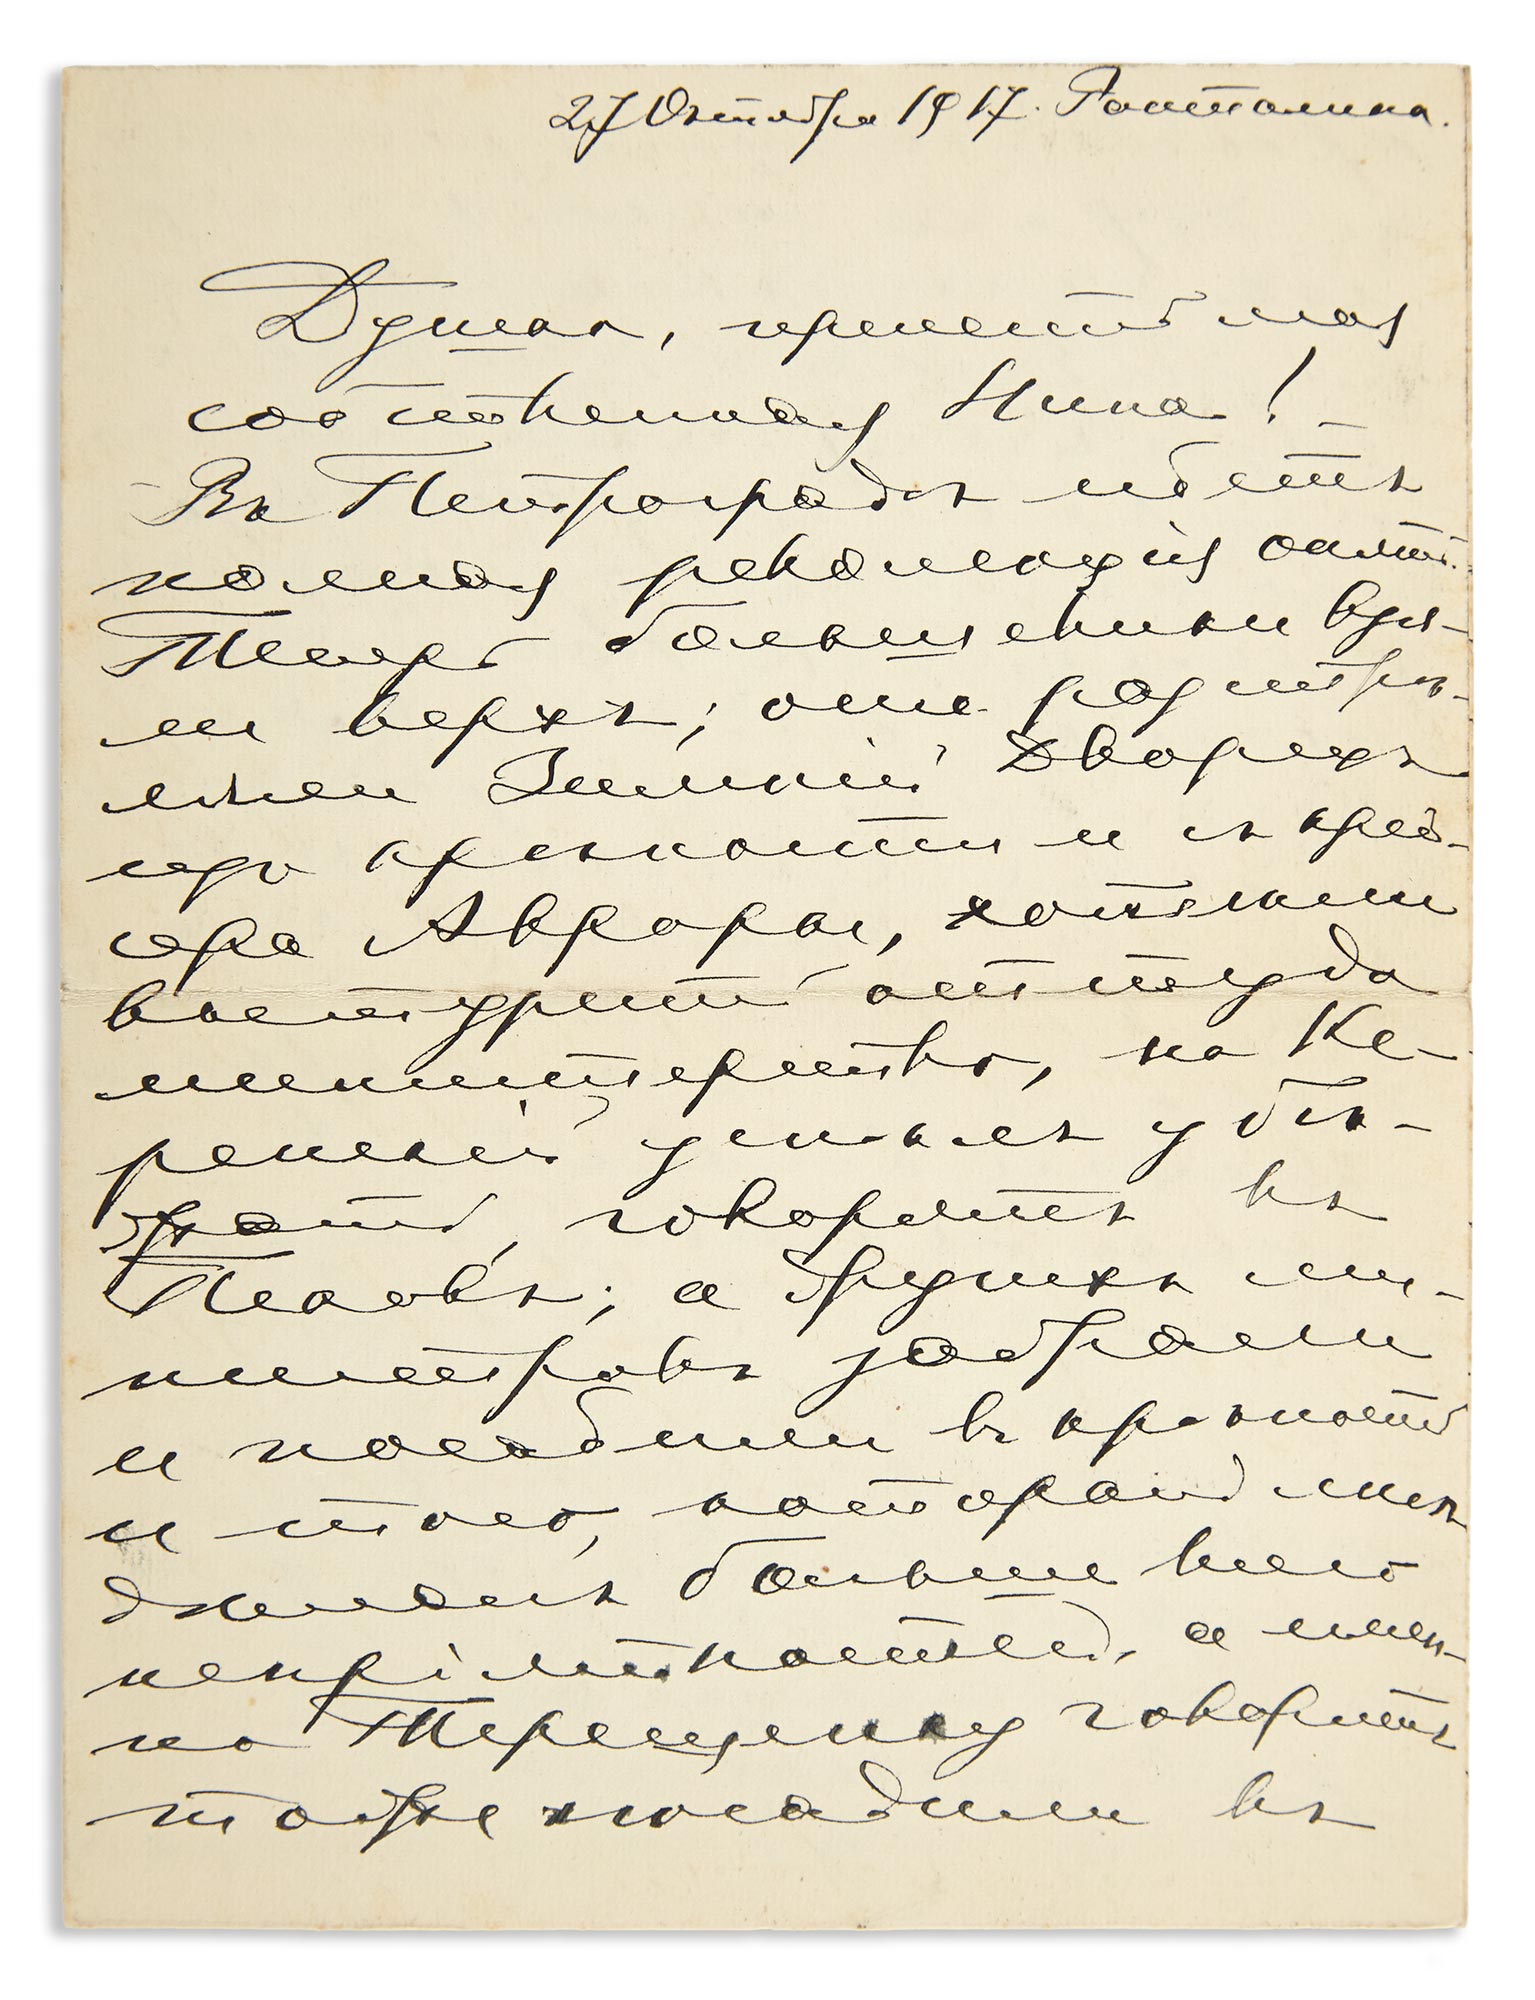 27 Октября 1917. Гостилина.
Душка, прелесть моя
собственная Нина! –
Въ Петроградѣ идетъ
полная революція опять.
Теперь большевики взя-
ли верхъ; они разстрѣ-
ляли Зимній Дворецъ
изъ крѣпости и съ крей-
сера Авроры, хотѣли
выкурить оттуда
министерство, но Ке-
ренскій успѣлъ убѣ-
жать, говорятъ въ
Псковъ; а другихъ ми-
нистровъ забрали
и посадили въ крѣпость
и того, который мнѣ
дѣлалъ больше всего
непріятностей, а имен-
но Терещенку говорятъ
тоже посадили въ